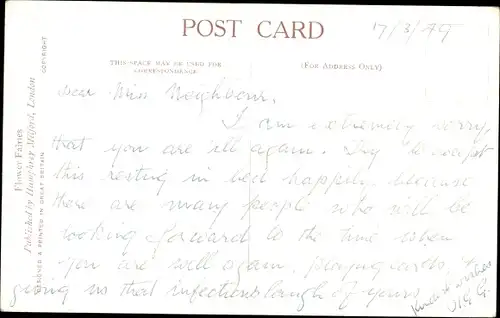 POST CARD
17/3/79
THIS SPACE MAY BE USED FOR CORRESPONDENCE
(FOR ADDRESS ONLY)
Flower Fairies
Published by Humphrey Milford, London
DESIGNED & PRINTED IN GREAT BRITAIN
COPYRIGHT
Dear Miss Neighbour,
I am extremely sorry,
that you are ill again. Try to accept
this resting in bed happily because
there are many people who will be
looking forward to the time when
you are well again, playing cards, &
giving us that infectious laugh of yours
Kindest wishes